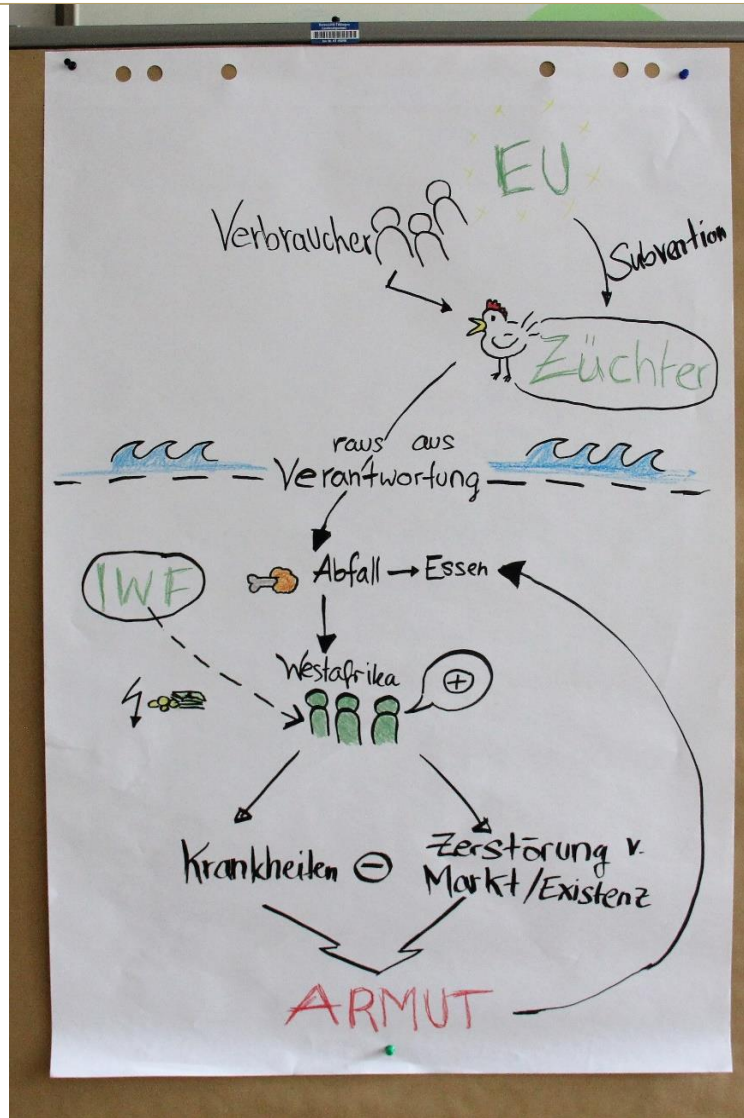 EU
Verbraucher
Subvention
Züchter
raus aus
Verantwortung
IWF
Abfall → Essen
Westafrika
+
Krankheiten ⊖ Zerstörung v.
Markt/Existenz
ARMUT